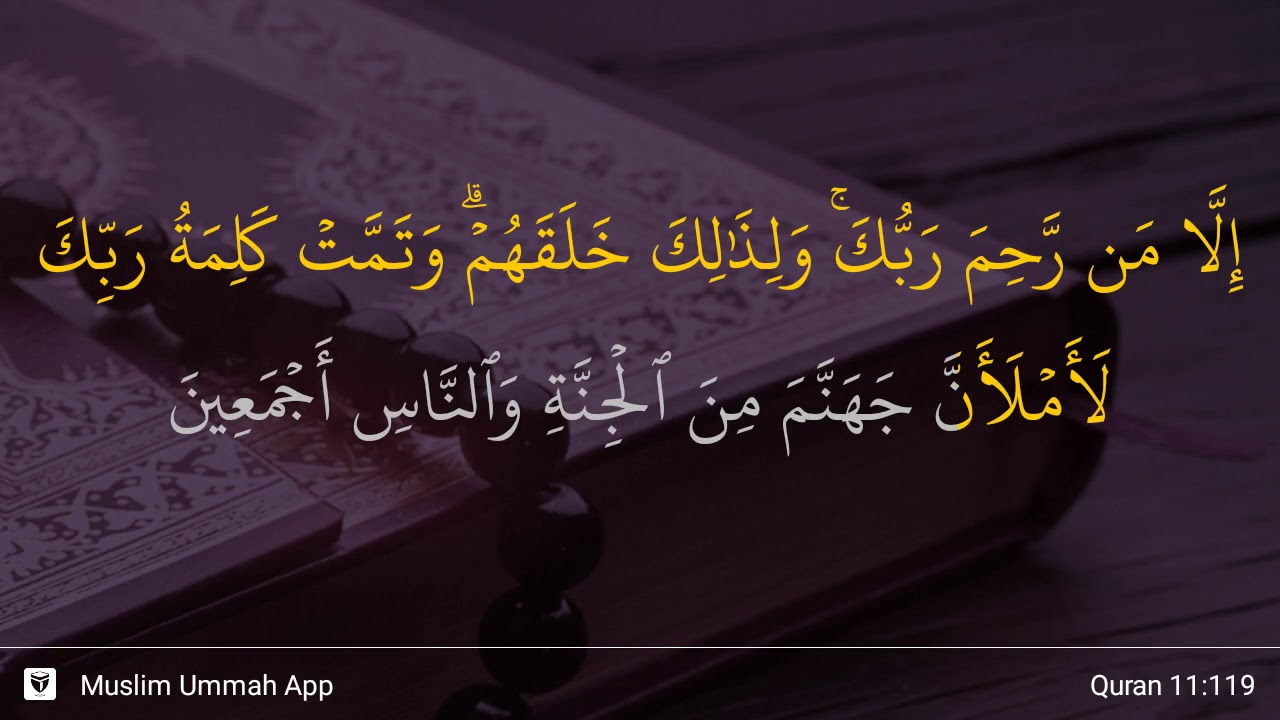 إِلَّا مَن رَّحِمَ رَبُّكَ ۚ وَلِذَٰلِكَ خَلَقَهُمْ ۗ وَتَمَّتْ كَلِمَةُ رَبِّكَ
لَأَمْلَأَنَّ جَهَنَّمَ مِنَ ٱلْجِنَّةِ وَٱلنَّاسِ أَجْمَعِينَ
Muslim Ummah App
Quran 11:119